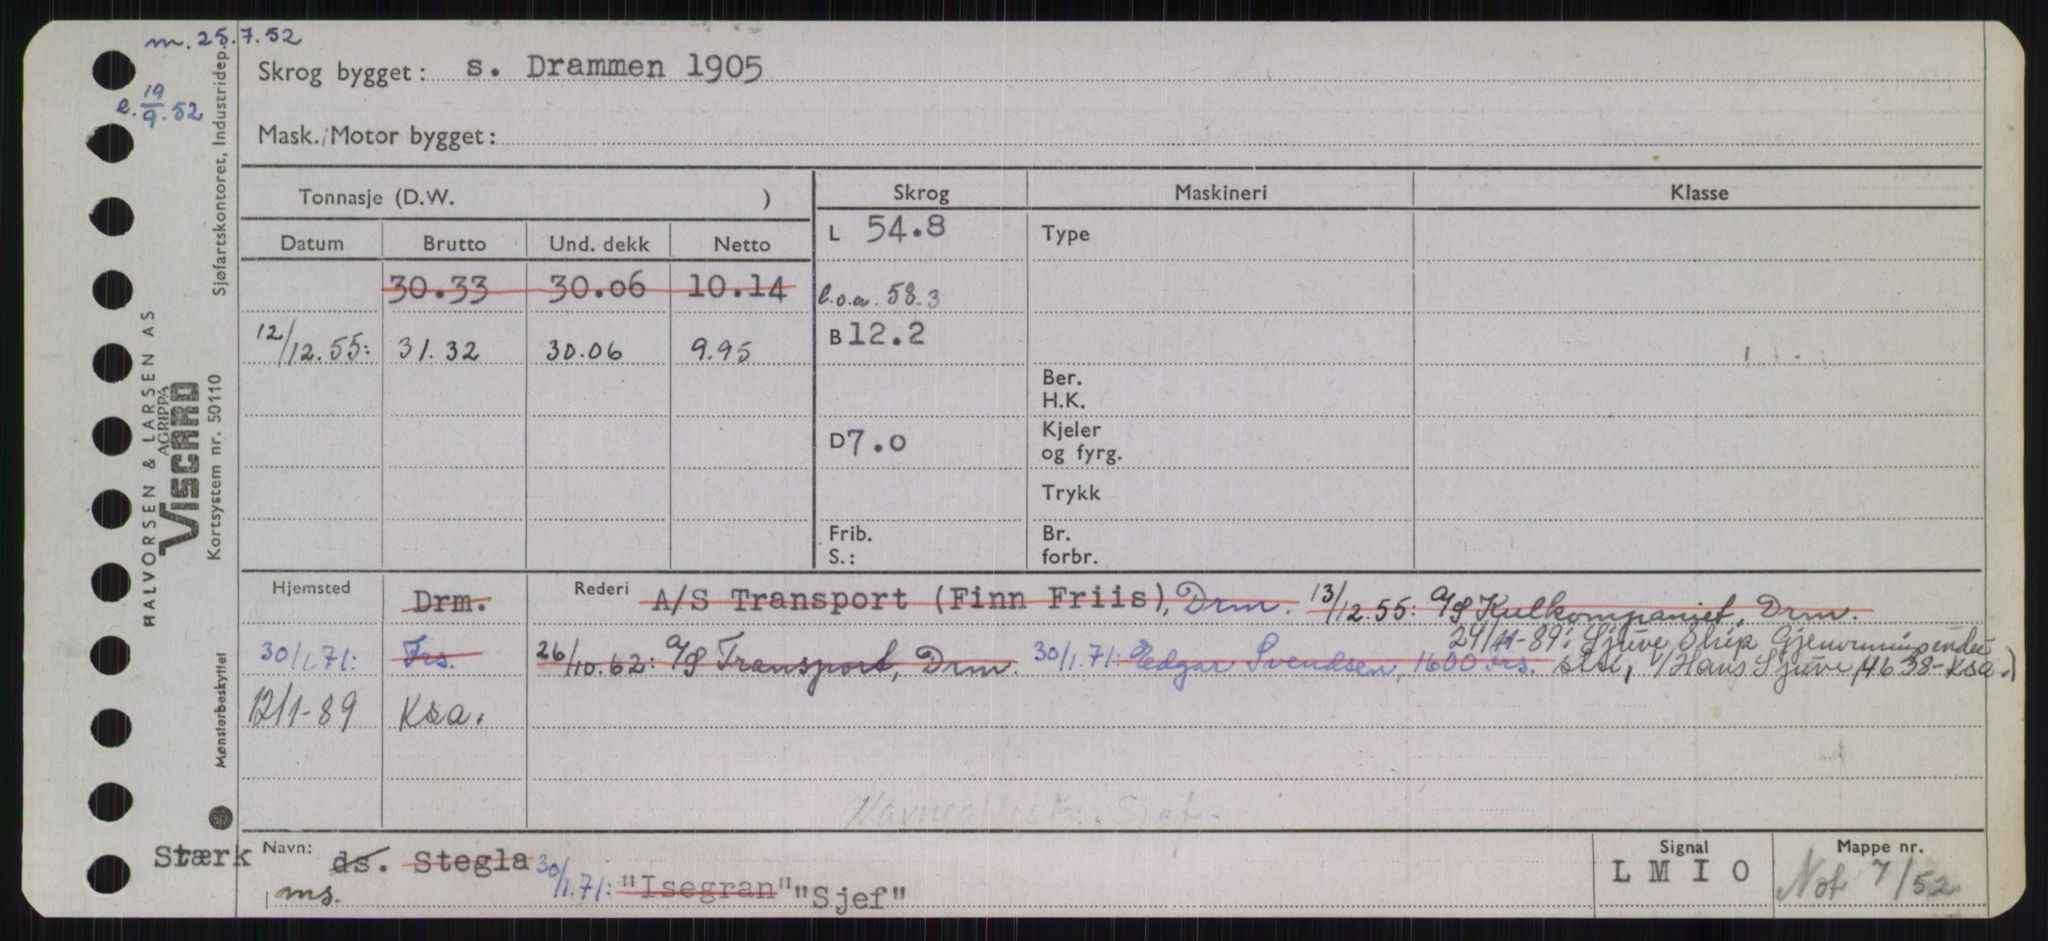 m. 25.7.52
e. 19/9.52
Skrog bygget: s. Drammen 1905
Mask./Motor bygget:
Tonnasje (D.W. )
Skrog Maskineri Klasse
Datum Brutto Und. dekk Netto
L 54.8 Type
30.33 30.06 10.14
l.o.a. 58.3
12/12.55: 31.32 30.06 9.95
B 12.2
Ber.
H.K.
D 7.0 Kjeler
og fyrg.
Trykk
Frib. Br.
S.: forbr.
Hjemsted Drm. Rederi A/S Transport (Finn Friis), Drm. 13/12.55: A/S Kulkompaniet, Drm.
24/11-89: Sjuve Skip
30/1.71: Frs. 26/10.62: A/S Transport, Drm. 30/1.71: Edgar Svendsen, 1600 Frs. v/Hans Sjuve (4638-Ksa.)
12/1-89 Ksa.
Sjef
Stærk Navn: ds. Stegla 30/1.71: "Isegran" "Sjef"
ms.
Signal Mappe nr.
L M I O Not 7/52
Sjøfartskontoret, Industridep.
HALVORSEN & LARSEN AS
AGRIPPA
VISCARD
Kortsystem nr. 50110
Mønsterbeskyttet